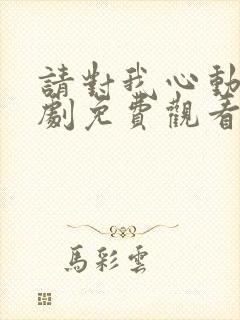 請對我心動
劇免費觀看
馬彩雲